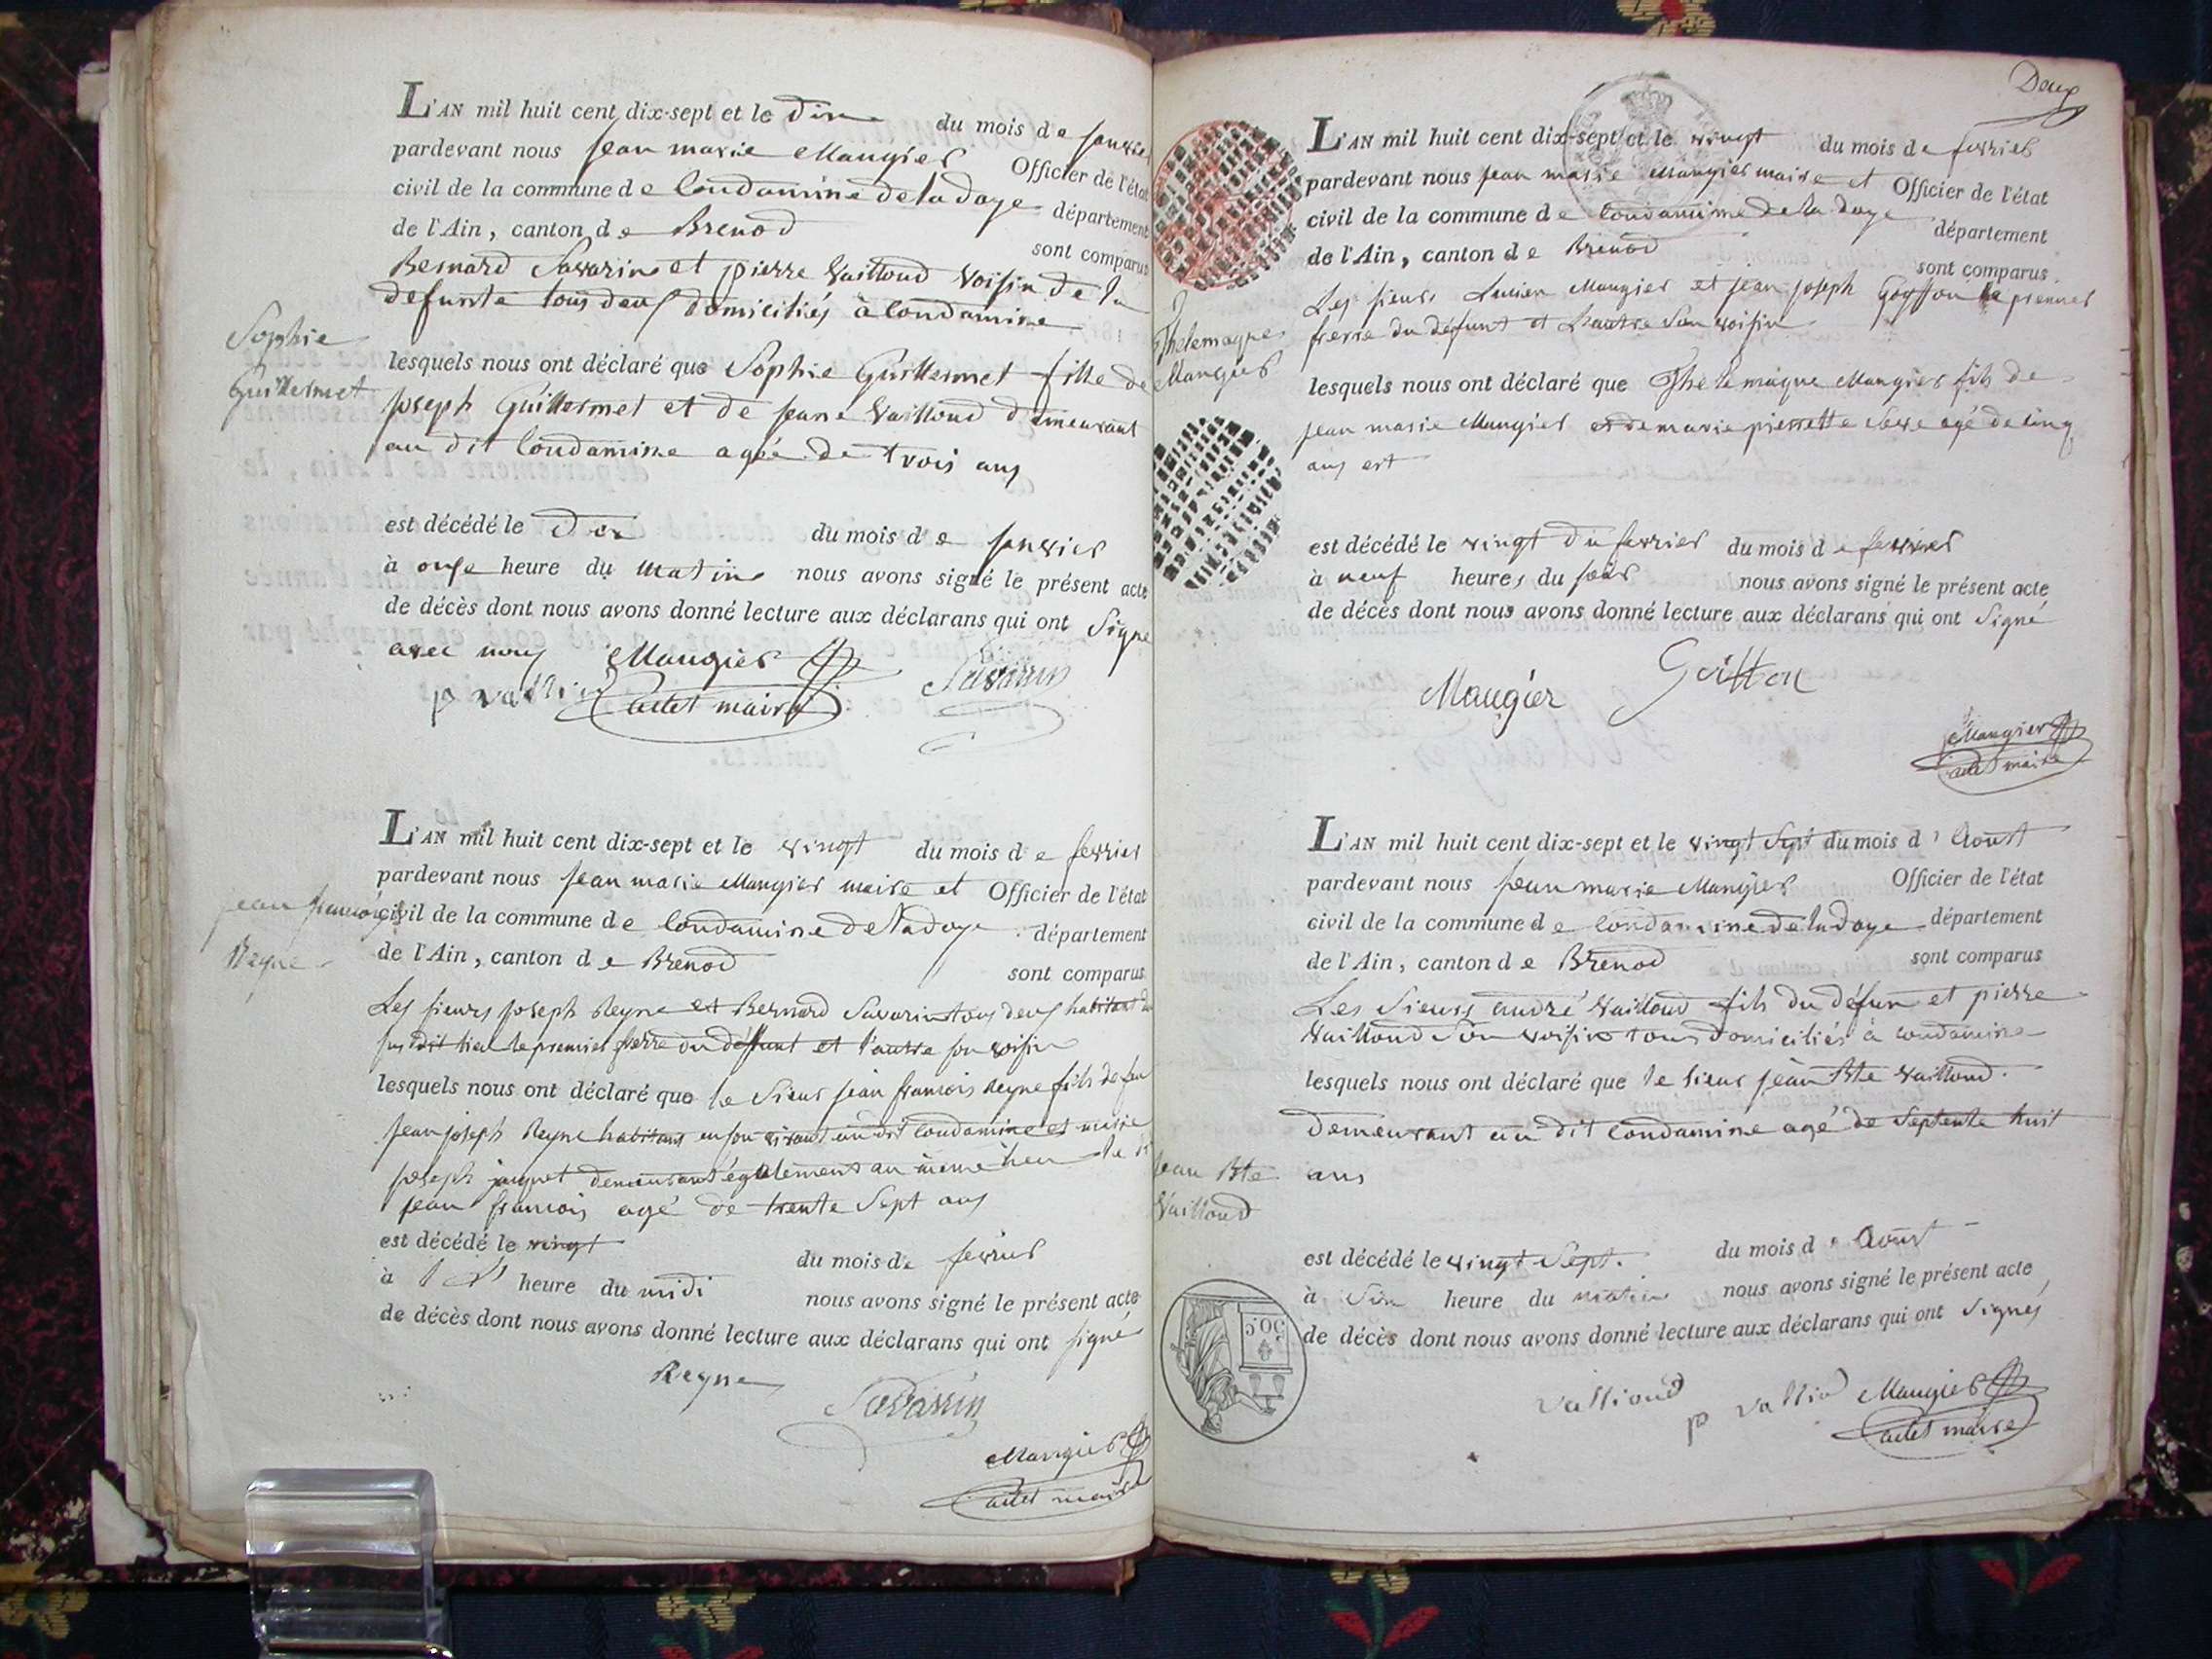 L'AN mil huit cent dix-sept et le dix du mois de janvier
pardevant nous jean marie Maugier Officier de l'état
civil de la commune de Condamine de la doye département
de l'Ain, canton de Brenod sont comparus
Bernard Savarin et pierre Vailloud voisin de la
defunte tous deux domiciliés à Condamine
Sophie
Guillermet
lesquels nous ont déclaré que Sophie Guillermet fille de
joseph Guillermet et de jeane Vailloud demeurant
au dit Condamine agée de trois ans
est décédé le dix du mois de janvier
à onze heure du matin nous avons signé le présent acte
de décès dont nous avons donné lecture aux déclarans qui ont Signé
avec nous Maugier Savarin
p vallioud adet maire
L'AN mil huit cent dix-sept et le vingt du mois de fevrier
pardevant nous jean marie Maugier maire et Officier de l'état
jean francois
civil de la commune de Condamine de la doye département
Reyne
de l'Ain, canton de Brenod sont comparus
Les sieurs joseph Reyne et Bernard Savarin tous deux habitant du
susdit lieu le premier frerre du défunt et l'autre son voisin
lesquels nous ont déclaré que le Sieur jean francois Reyne fils de feu
jean joseph Reyne habitant en son vivant au dit Condamine et marie
joseph jaquet demeurant également au meme lieu le dt
jean francois agé de trente Sept ans
est décédé le vingt du mois de fevrier
à heure du midi nous avons signé le présent acte
de décès dont nous avons donné lecture aux déclarans qui ont signé
Reyne
Savarin
Maugier
adet maire
Deux
L'AN mil huit cent dix-sept et le vingt du mois de fevrier
pardevant nous jean marie Maugier maire et Officier de l'état
civil de la commune de Condamine de la doye département
de l'Ain, canton de Brenod sont comparus
Les sieurs Lucien Maugier et jean joseph Goitton le premier
frerre du défunt et l'autre Son voisin
Thelemaque
Maugier
lesquels nous ont déclaré que Thelemaque Maugier fils de
jean marie Maugier et de marie pierrette Serre agé de cinq
ans est
est décédé le vingt du fevrier du mois de fevrier
à neuf heures du soir nous avons signé le présent acte
de décès dont nous avons donné lecture aux déclarans qui ont Signé
Maugier Goitton
Maugier
adet maire
L'AN mil huit cent dix-sept et le vingt Sept du mois d'Aoust
pardevant nous jean marie Maugier Officier de l'état
civil de la commune de Condamine de la doye département
de l'Ain, canton de Brenod sont comparus
Les Sieurs andré Vailloud fils du défun et pierre
Vailloud Son voisin tous domiciliés à condamine
lesquels nous ont déclaré que le sieur jean Bte Vailloud
demeurant au dit Condamine agé de Septente huit
ans
jean Bte
Vailloud
est décédé le vingt Sept. du mois d'Aoust
à Six heure du matin nous avons signé le présent acte
de décès dont nous avons donné lecture aux déclarans qui ont Signés
50 C
vallioud p vallioud Maugier
adet maire